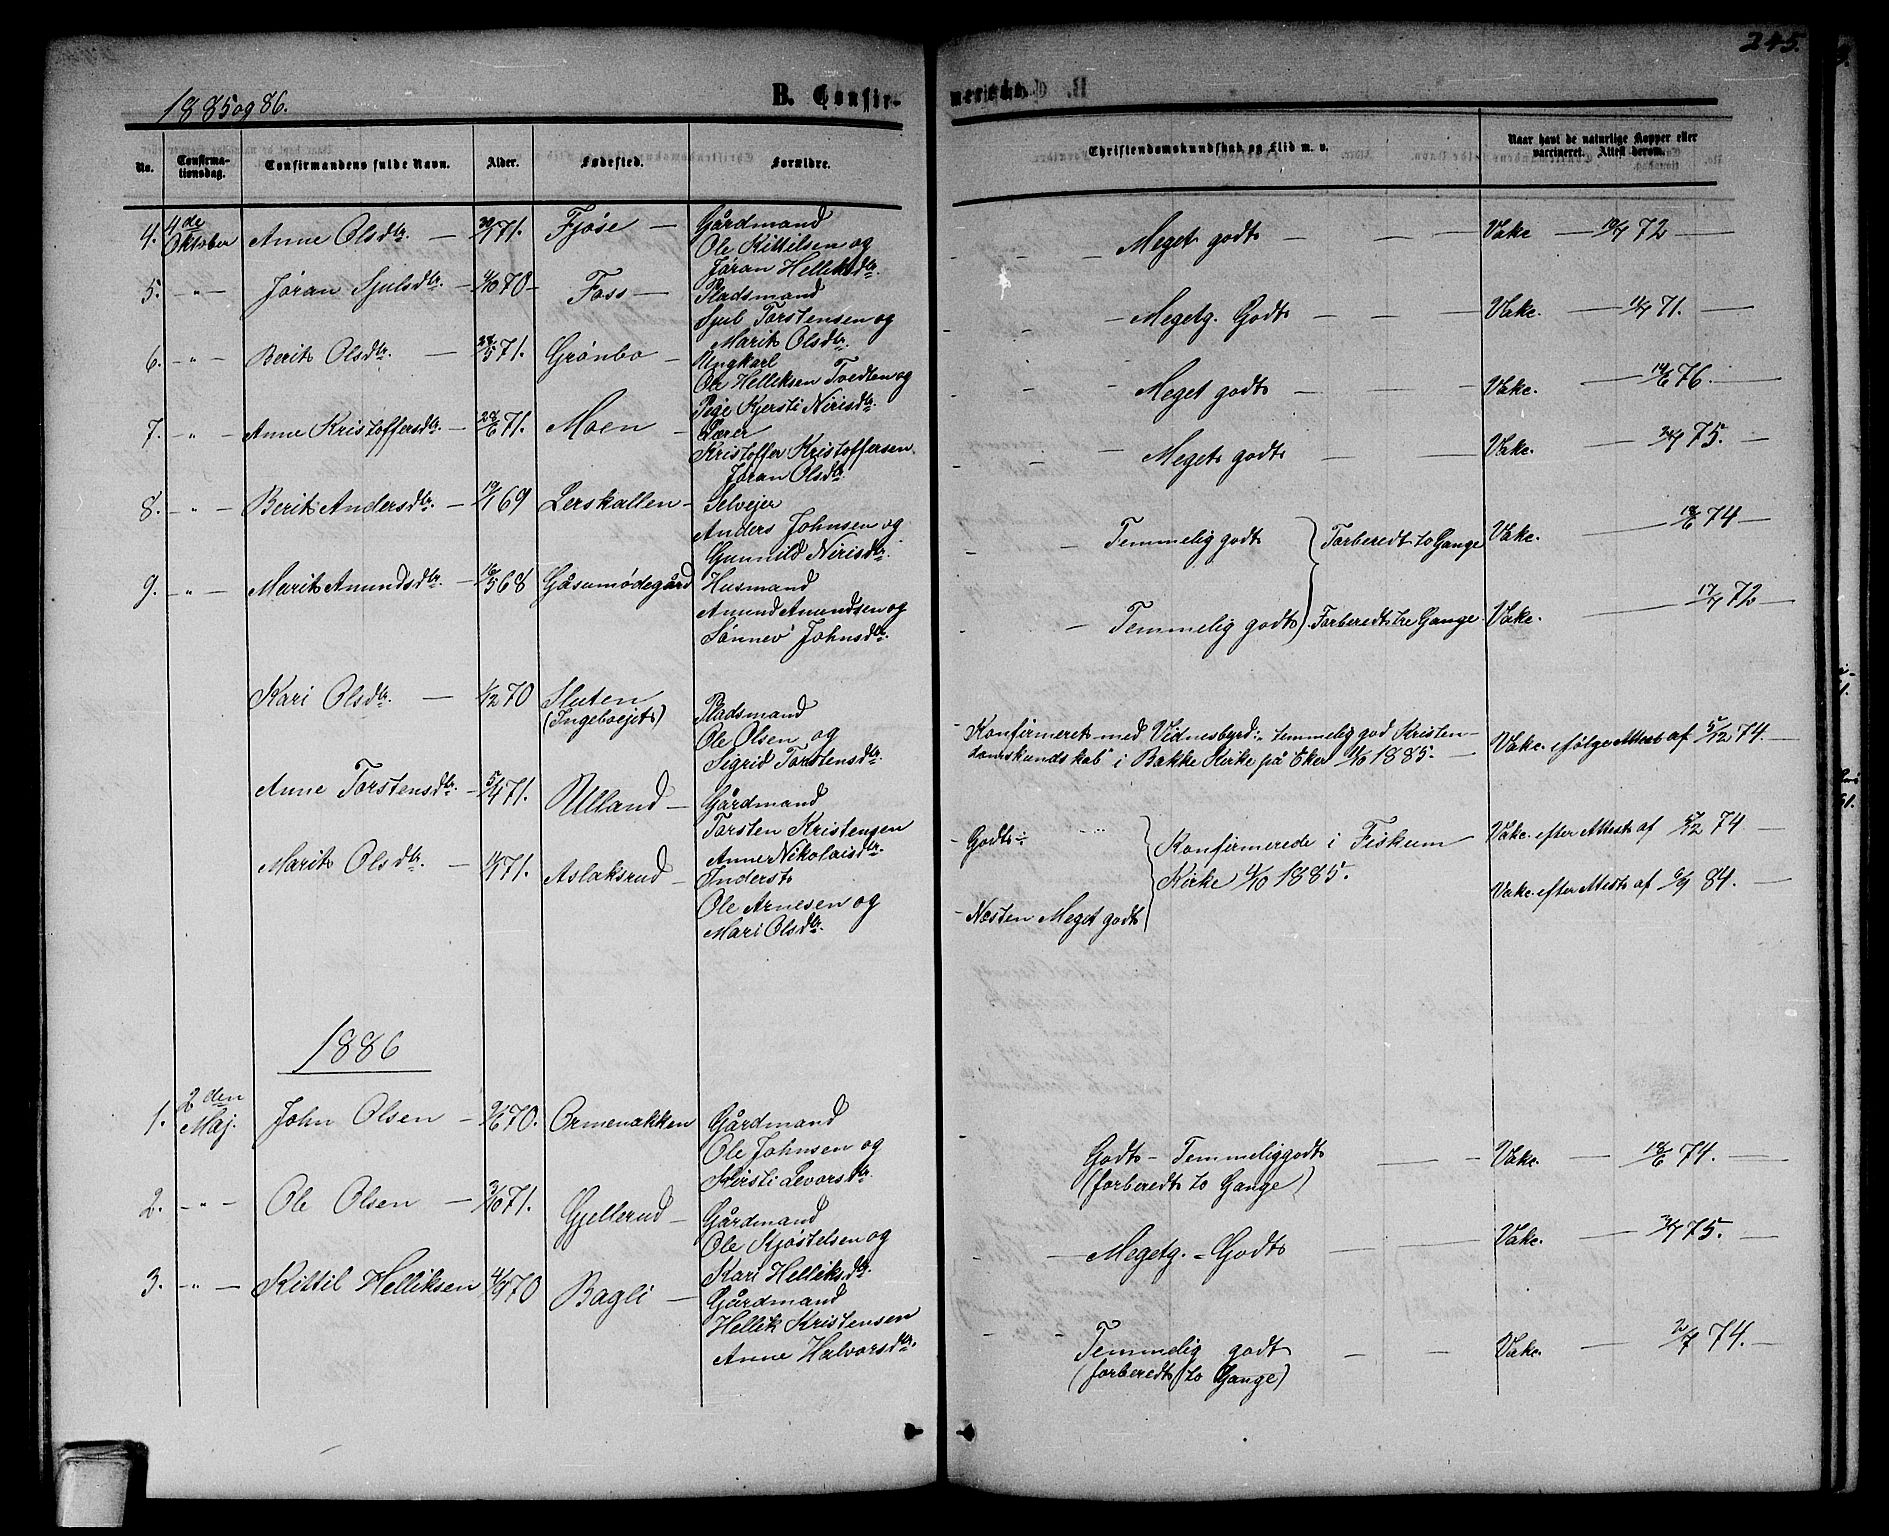 1885 og 86.
B. Confir-
merede.
245.
No.
Confirma-
tionsdag.
Confirmandens fulde Navn.
Alder.
Fødested.
Forældre.
Christendomskundskab og Flid m. v.
Naar havt de naturlige Kopper eller
vaccineret. Attest derom.
4. 4de Oktober Anne Olsdtr. — 71. Fjøse —
Gårdmand
Ole Kittilsen og
Jøran Helliksdtr.
Meget godt — Vakc. — 72 —
5. — " — Jøran Sjulsdtr. — 70 — Foss —
Pladsmand
Sjul Torstensen og
Marit Olsdtr.
Megetg. Godt — Vakc. — 71. —
6. — " — Berit Olsdtr. — 71. Grønbo —
Ungkarl
Ole Helliksen Tvedten og
Pige Kjersti Nirisdtr.
Meget godt — Vakc. — 76. —
7. — " — Anne Kristoffersdtr. — 71. Moen —
Lærer
Kristoffer Kristoffersen
Jøran Olsdtr.
Meget godt — Vakc. — 75. —
8. — " — Berit Andersdtr. — 69 Lerskallen —
Selvejer
Anders Johnsen og
Gunnild Nirisdtr.
Temmelig godt } Forberedt to Gange Vakc. — 74 —
9. — " — Marit Amundsdtr. — 68 Gåsumødegård
Husmand
Amund Amundsen og
Sønnev Johnsdtr.
Temmelig godt } Forberedt tre Gange Vakc. — 72 —
Kari Olsdtr. — 1/12 70 Sluten
(Ingeboejet)
Pladsmand
Ole Olsen og
Sigrid Torstensdtr.
— Konfirmeret med Vidnesbyrd: "temmelig god Kristen-
domskundskab" i Bakke Kirke på Eker 1885. —
Vakc. ifølge Attest af 5/12 74. —
Anne Torstensdtr. — 5/4 71. Ulland —
Gårdmand
Torsten Kristensen
Anne Nikolaisdtr.
— Godt
Vakc. efter Attest af 74 —
Marit Olsdtr. — 71. Aslaksrud —
Inderst
Ole Arnesen og
Mari Olsdtr.
— Næsten Meget godt
} Konfirmerede i Fiskum
Kirke 4/10 1885.
Vakc. efter Attest af 84. —
1886
1. 2den Maj. John Olsen — 70. Ormenakken
Gårdmand
Ole Johnsen og
Kirsti Levorsdtr.
Godt – Temmelig godt
(forberedt to Gange)
Vakc. — 74. —
2. — " — Ole Olsen — 3/10 71. Gjellerud —
Gårdmand
Ole Kjøstelsen og
Kari Helliksdtr.
— Megetg. – Godt — Vakc. — 75. —
3. — " — Kittil Helliksen 70 Bagli —
Gårdmand
Hellik Kristensen
Anne Halvorsdtr.
Temmelig godt
(forberedt to Gange)
Vakc. — 2/7 74. —